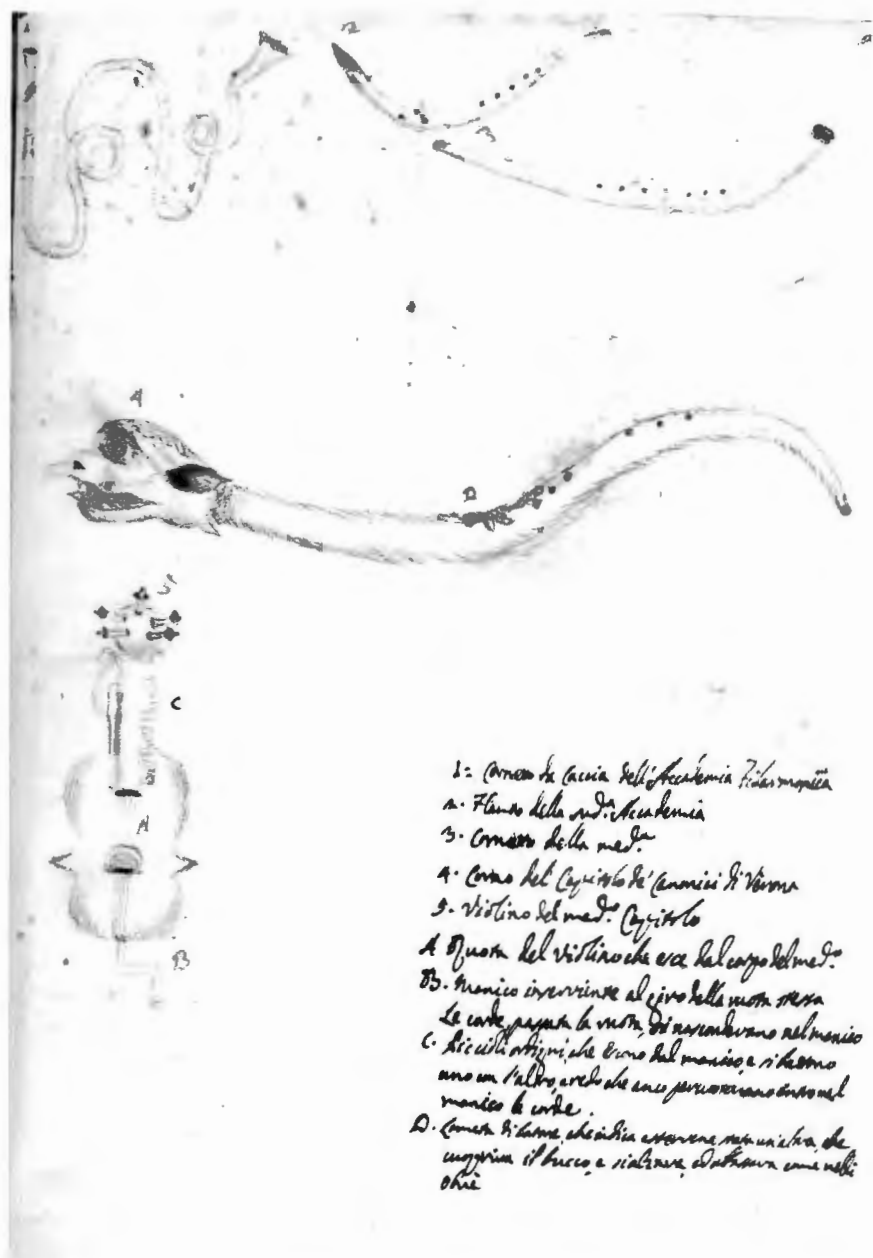 A
C
A
B
1= Corno da Caccia dell'Accademia Filarmonica
2. Flauto della sud.ª Accademia
3. Cornetto della med.ª
4. Corno del Capitolo de' Canonici di Verona
5. Violino del med.º Capitolo
A Ruota del Violino che esce dal corpo del med.º
B. Manico inserviente al giro della ruota stessa
Le corde, passata la ruota, si nascondevano nel manico
C. Piccioli ordigni, che escono dal manico, e si
uno con l'altro, credo che anco percuotevano entro nel
manico le corde.
D. di che indica esservene stata un'altra, che
il bucco, e si alzava, ed abbassava come nelli
obuè